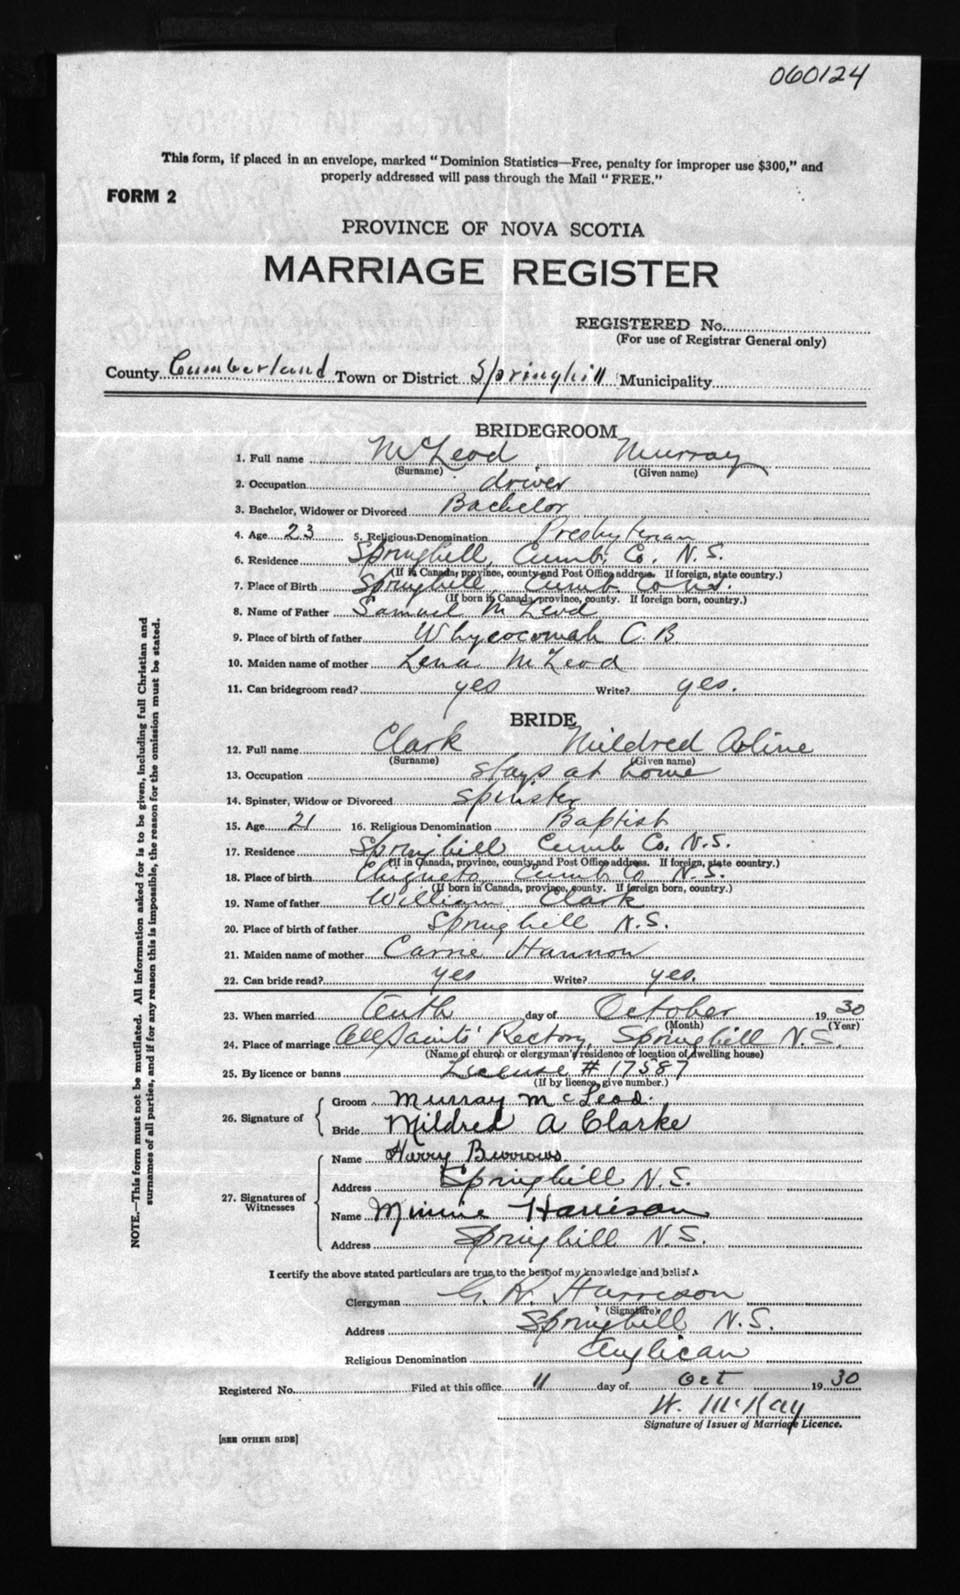 060124
This form, if placed in an envelope, marked "Dominion Statistics—Free, penalty for improper use $300," and
properly addressed will pass through the Mail "FREE."
FORM 2
PROVINCE OF NOVA SCOTIA
MARRIAGE REGISTER
REGISTERED No.
(For use of Registrar General only)
County Cumberland Town or District Springhill Municipality
BRIDEGROOM
1. Full name McLeod Murray
(Surname) (Given name)
2. Occupation driver
3. Bachelor, Widower or Divorced Bachelor
4. Age 23 5. Religious Denomination Presbyterian
6. Residence Springhill, Cumb. Co. N.S.
(If in Canada, province, county and Post Office address. If foreign, state country.)
7. Place of Birth Springhill, Cumb. Co N.S.
(If born in Canada, province, county. If foreign born, country.)
8. Name of Father Samuel McLeod
9. Place of birth of father Whycocomah C.B
10. Maiden name of mother Lena McLeod
11. Can bridegroom read? yes Write? yes.
BRIDE
12. Full name Clark Mildred Arline
(Surname) (Given name)
13. Occupation stays at home
14. Spinster, Widow or Divorced spinster
15. Age 21 16. Religious Denomination Baptist
17. Residence Springhill Cumb Co. N.S.
(If in Canada, province, county and Post Office address. If foreign, state country.)
18. Place of birth Cumb Co N.S.
(If born in Canada, province, county. If foreign born, country.)
19. Name of father William Clark
20. Place of birth of father Springhill N.S.
21. Maiden name of mother Carrie Hannon
22. Can bride read? yes Write? yes.
23. When married Tenth day of October 1930
(Month) (Year)
24. Place of marriage All Saints' Rectory, Springhill N.S.
(Name of church or clergyman's residence or location of dwelling house)
25. By licence or banns License # 17587
(If by licence, give number.)
26. Signature of Groom Murray McLeod.
Bride Mildred A Clarke
27. Signatures of Witnesses
Name Harry Burrows
Address Springhill N.S.
Name Minnie Harrison
Address Springhill N.S.
I certify the above stated particulars are true to the best of my knowledge and belief.
Clergyman G. K. Harrison
(Signature)
Address Springhill N.S.
Religious Denomination Anglican
Registered No. Filed at this office 11 day of Oct 1930
W. McKay
Signature of Issuer of Marriage Licence.
[SEE OTHER SIDE]
NOTE.—This form must not be mutilated. All information asked for is to be given, including full Christian and
surnames of all parties, and if for any reason this is impossible, the reason for the omission must be stated.